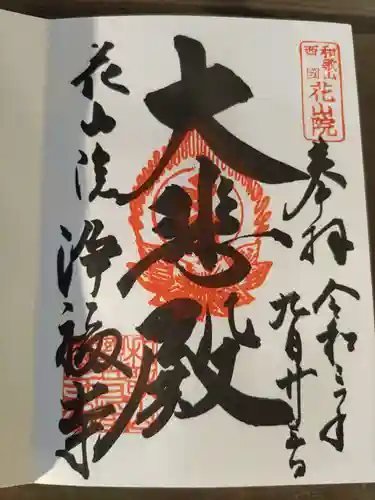 和歌山
西国
花山院
奉拝
令和三年
九月廿三日
大悲殿
花山院
浄福寺